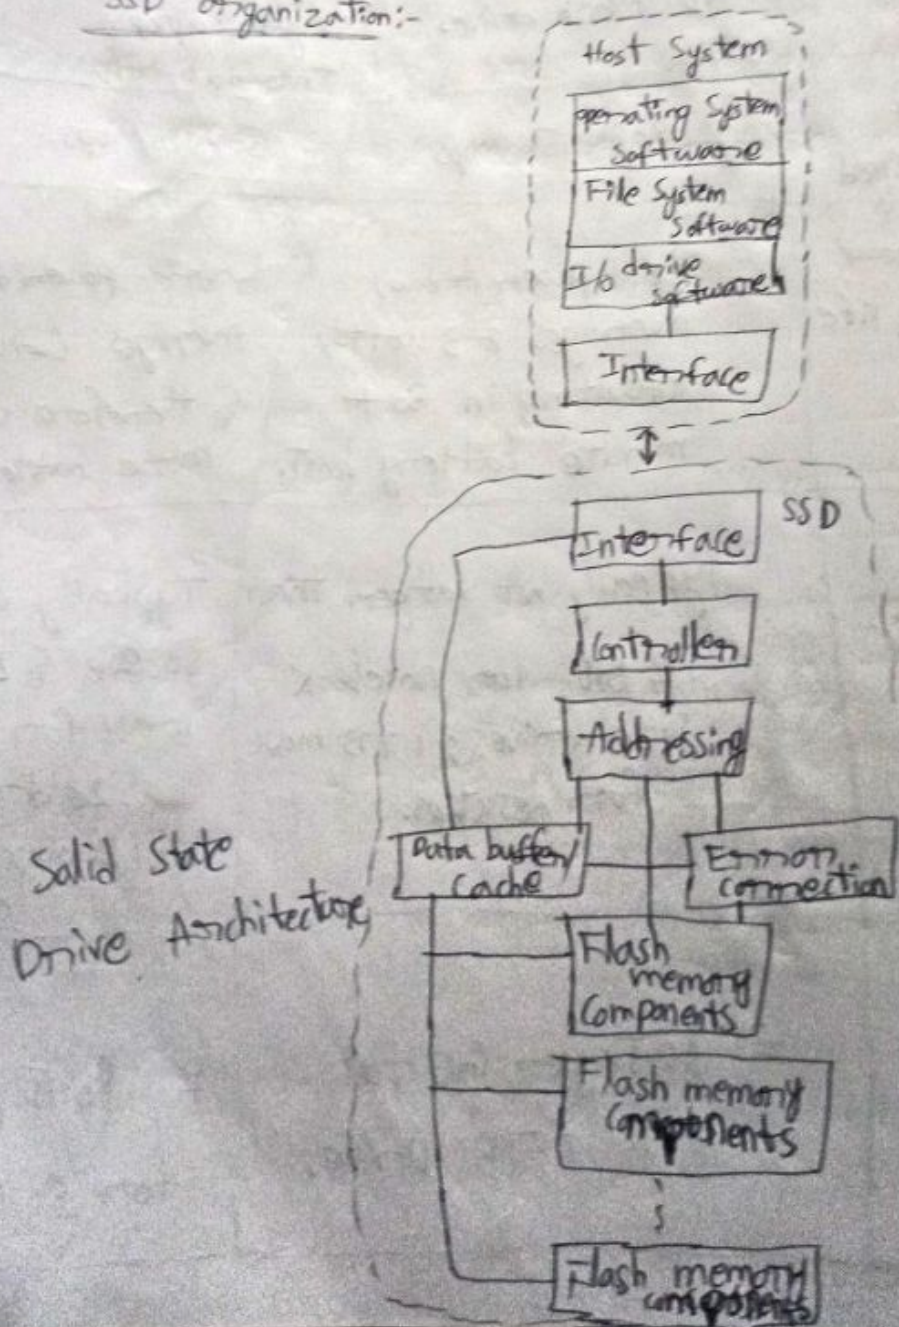 SSD Organization:-
Host System
Operating System
Software
File System
Software
I/o drive
software
Interface
SSD
Interface
Controller
Addressing
Data buffer/
Cache
Error
correction
Solid State
Drive Architecture
Flash
memory
Components
Flash memory
Components
Flash memory
components